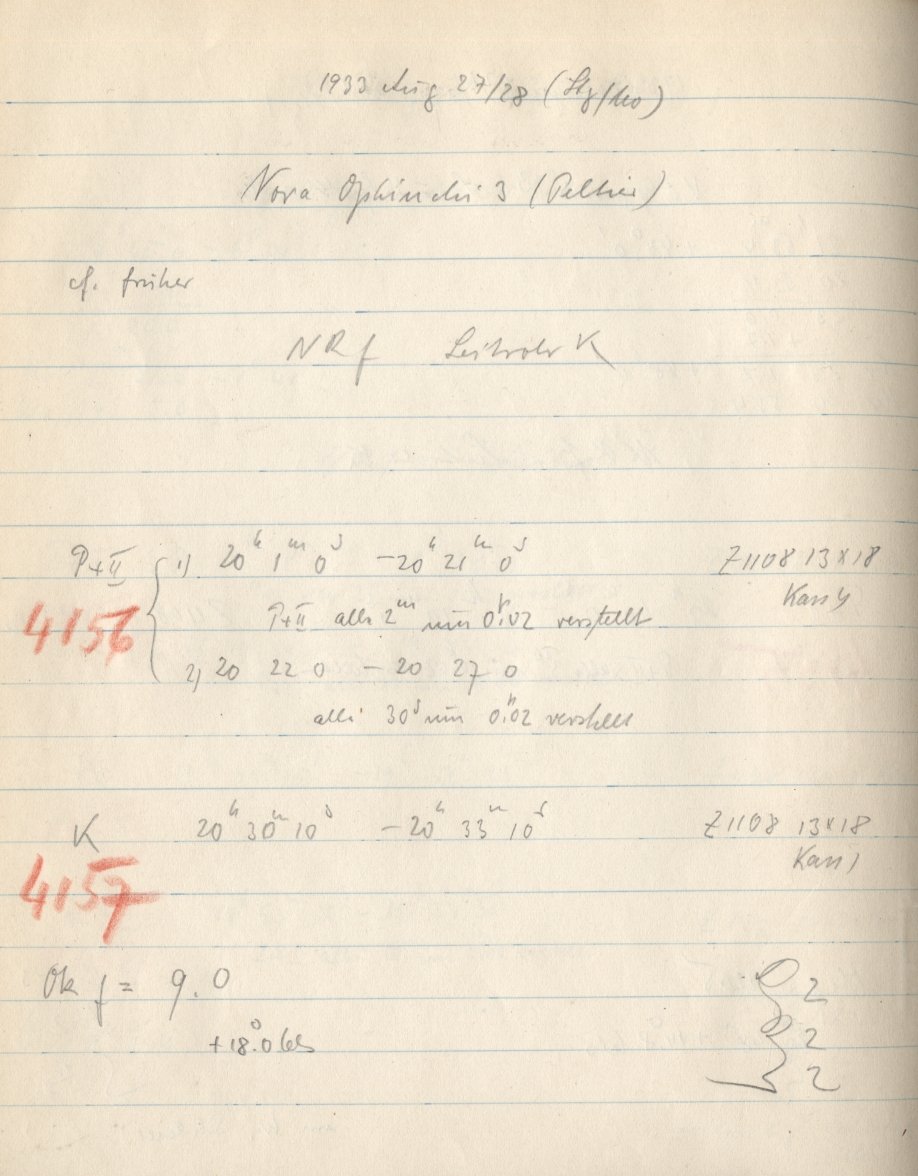 1933 Aug 27/28 (Stg/Mo)
Nova Ophiuchi 3 (Peltier)
cf. früher
NRf Leitrohr K
P+II 1) 20h 1m 0s – 20h 21m 0s Z1108 13x18
4156 P+II alle 2m um 0h.02 verstellt Kass 4
2) 20 22 0 – 20 27 0
alle 30s um 0h.02 verstellt
K 20h 30m 10s – 20h 33m 10s Z1108 13x18
4157 Kass 1
Ok f = 9.0 2
+18°.0 Cels 2
2